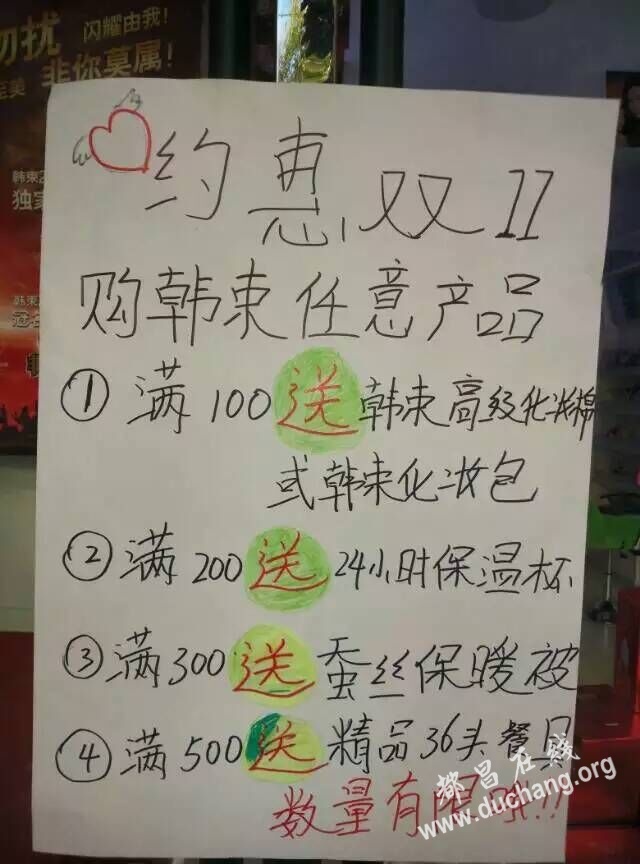 勿扰
闪耀由我!
至美 非你莫属!
韩束
独家
韩束
冠名
约惠双11
购韩束任意产品
①满100送韩束高级化妆棉
或韩束化妆包
②满200送24小时保温杯
③满300送蚕丝保暖被
④满500送精品36头餐具
数量有限哦!!!
都昌在线
www.duchang.org